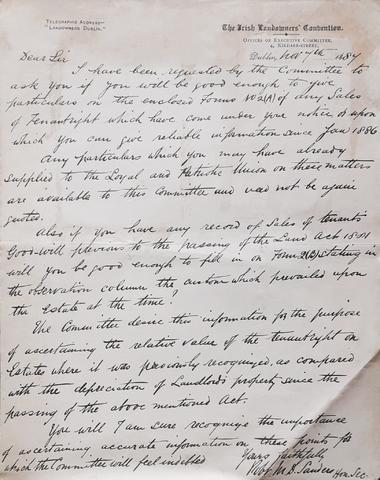 TELEGRAPHIC ADDRESS—
"LANDOWNERS DUBLIN."
The Irish Landowners' Convention.
OFFICES OF EXECUTIVE COMMITTEE,
4, KILDARE-STREET,
Dublin, Nov 7th 1887
Dear Sir
I have been requested by the Committee to
ask you if you will be good enough to give
particulars on the enclosed forms No 2(A) of any Sales
of Tenantright which have come under your notice & upon
which you can give reliable information since Jan 1886
Any particulars which you may have already
supplied to the Loyal and Patriotic Union on these matters
are available to this Committee and need not be again
quoted.
Also if you have any record of Sales of tenants
Good-will previous to the passing of the Land Act 1881
will you be good enough to fill in on Form 2(B) stating in
the observation column the custom which prevailed upon
the Estate at the time?
The Committee desire this information for the purpose
of ascertaining the relative value of the tenantright on
Estates where it was previously recognized, as compared
with the depreciation of Landlords property since the
passing of the above mentioned Act.
You will I am sure recognize the importance
of ascertaining accurate information on these points for
which the Committee will feel indebted
Yours faithfully
M. B. Sanders
Hon. Sec.